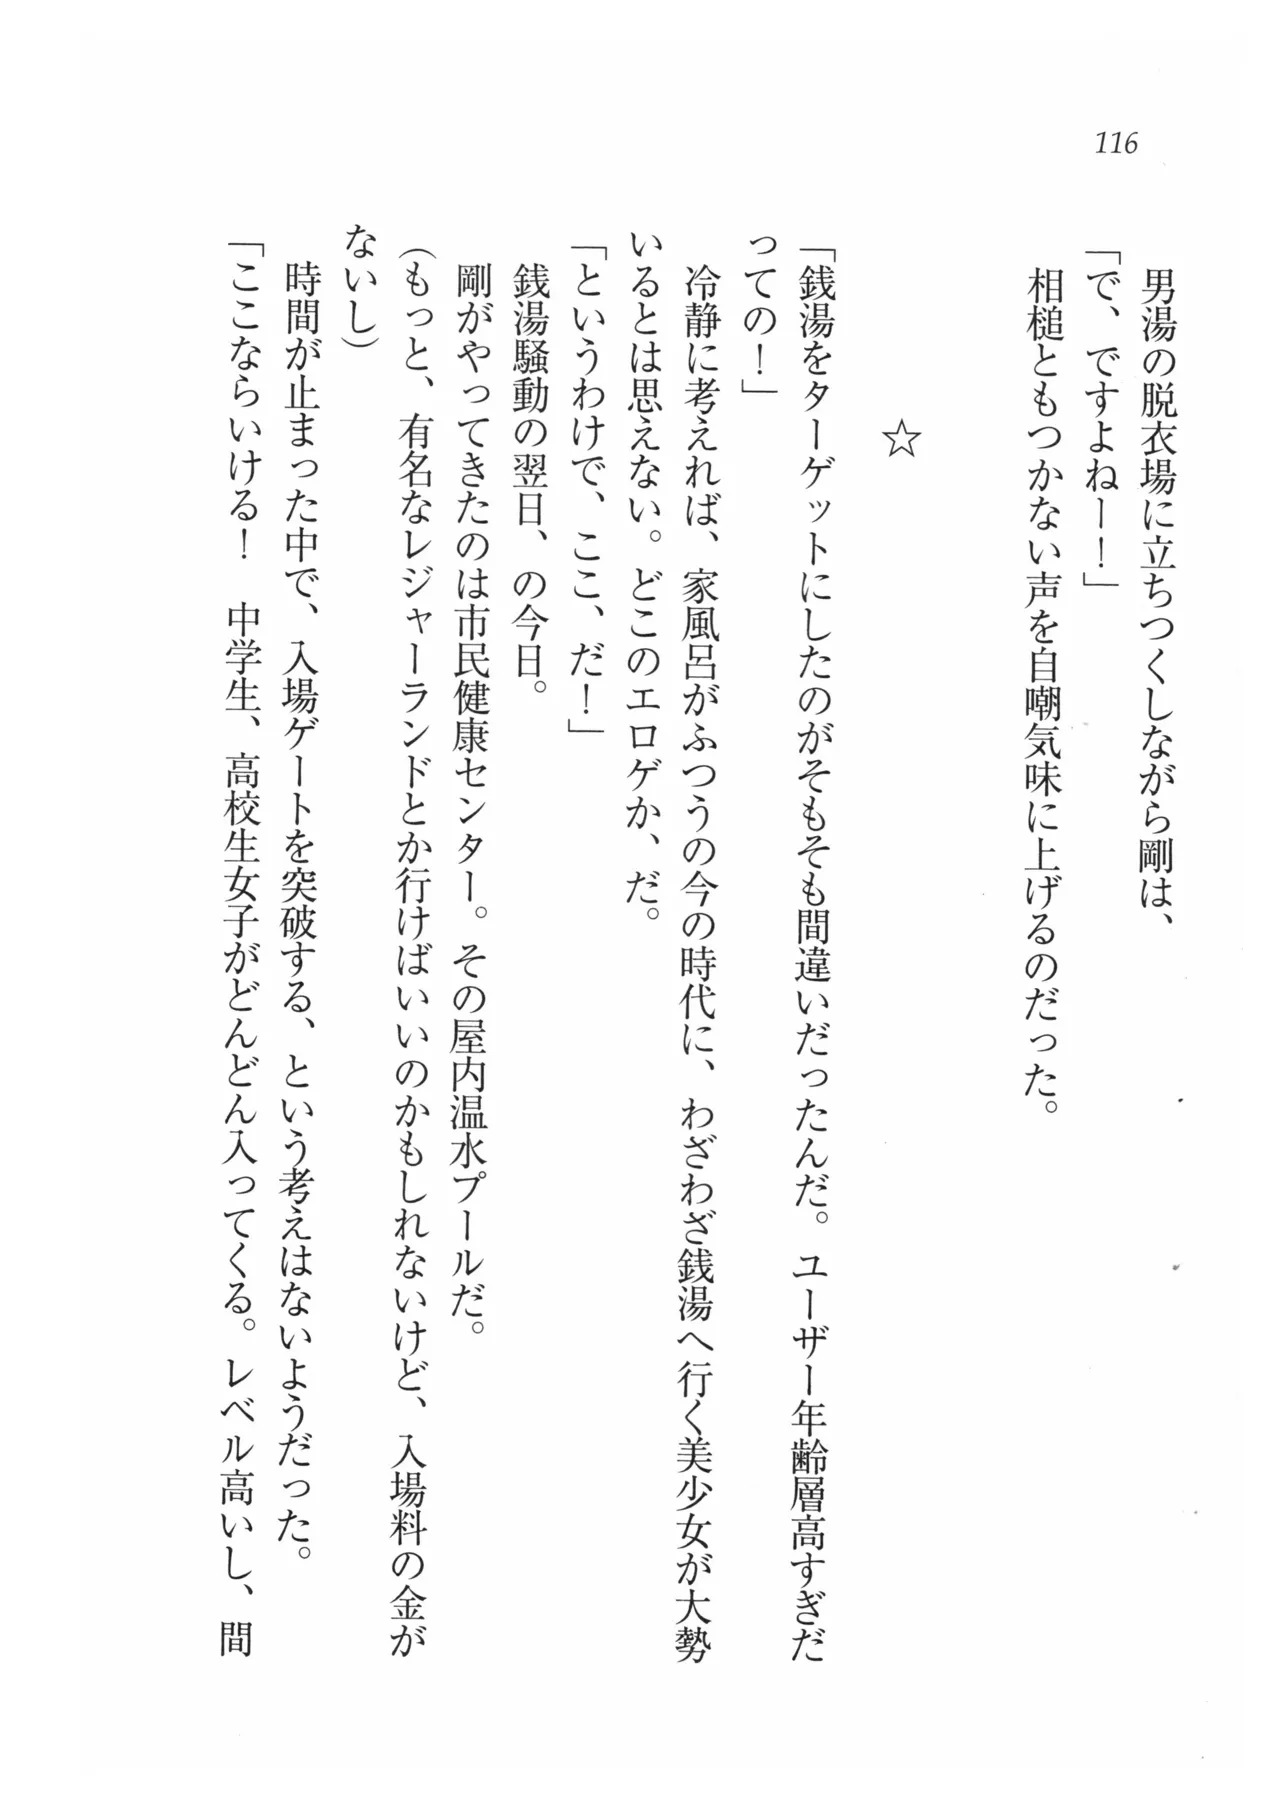 116
男湯の脱衣場に立ちつくしながら剛は、
「で、ですよねー！」
相槌ともつかない声を自嘲気味に上げるのだった。
☆
「銭湯をターゲットにしたのがそもそも間違いだったんだ。ユーザー年齢層高すぎだ
っての！」
冷静に考えれば、家風呂がふつうの今の時代に、わざわざ銭湯へ行く美少女が大勢
いるとは思えない。どこのエロゲか、だ。
「というわけで、ここ、だ！」
銭湯騒動の翌日、の今日。
剛がやってきたのは市民健康センター。その屋内温水プールだ。
（もっと、有名なレジャーランドとか行けばいいのかもしれないけど、入場料の金が
ないし）
時間が止まった中で、入場ゲートを突破する、という考えはないようだった。
「ここならいける！　中学生、高校生女子がどんどん入ってくる。レベル高いし、間